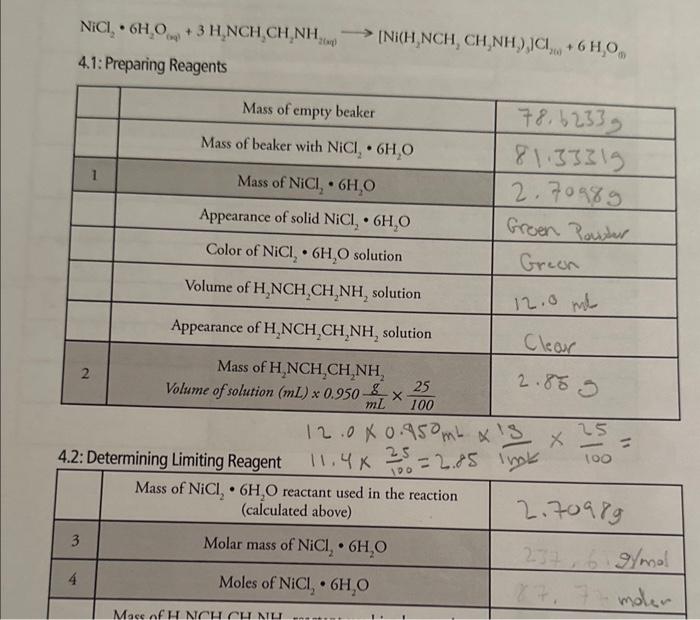 NiCl₂ • 6H₂O(aq) + 3 H₂NCH₂CH₂NH₂(aq) ⟶ [Ni(H₂NCH₂ CH₂NH₂)₃]Cl₂(s) + 6 H₂O(l)
4.1: Preparing Reagents
Mass of empty beaker 78.6233g
Mass of beaker with NiCl₂ • 6H₂O 81.3331g
1 Mass of NiCl₂ • 6H₂O 2.7098g
Appearance of solid NiCl₂ • 6H₂O Green Powder
Color of NiCl₂ • 6H₂O solution Green
Volume of H₂NCH₂CH₂NH₂ solution 12.0 mL
Appearance of H₂NCH₂CH₂NH₂ solution Clear
2 Mass of H₂NCH₂CH₂NH₂ 2.85 g
Volume of solution (mL) x 0.950 g/mL × 25/100
12.0 x 0.950mL x 1g/1mL x 25/100 =
11.4 x 25/100 = 2.85
4.2: Determining Limiting Reagent
Mass of NiCl₂ • 6H₂O reactant used in the reaction 2.7098g
(calculated above)
3 Molar mass of NiCl₂ • 6H₂O g/mol
4 Moles of NiCl₂ • 6H₂O